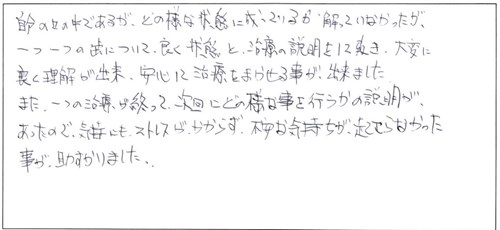 自分の口の中であるが、どの様な状態に成っているか解っていなかったが、
一つ一つの歯について、良く状態と、治療の説明をして頂き、大変に
良く理解が出来、安心して治療をまかせる事が、出来ました。
また、一つの治療が終って、次回にどの様な事を行うかの説明が、
あったので、気持にも、ストレスが、かからず、不安な気持ちが、起こらなかった
事が、助かりました。